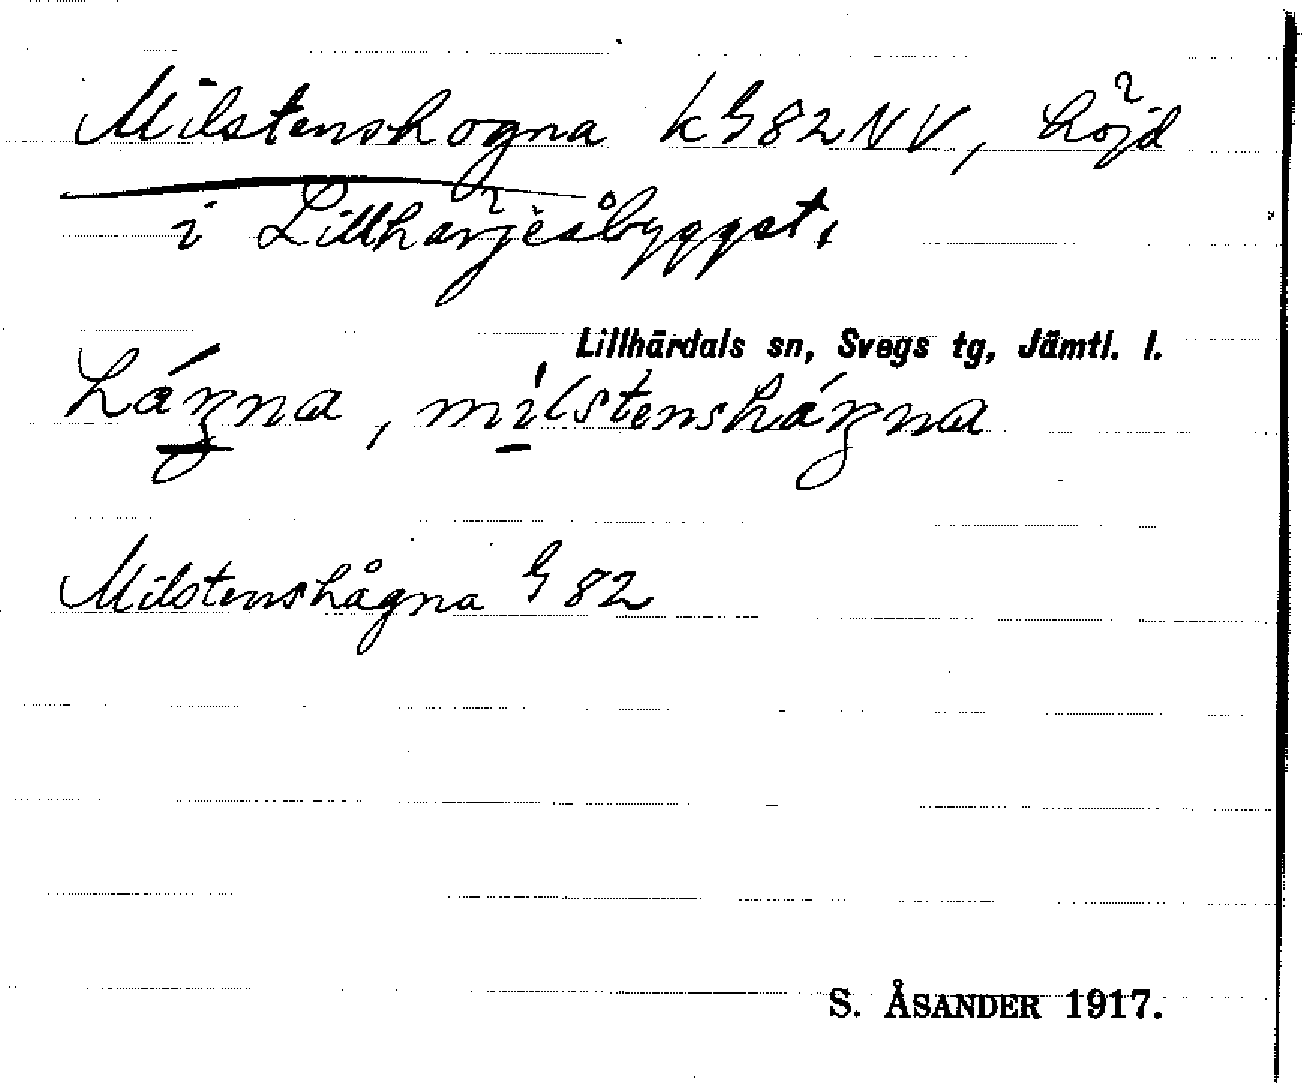 Milstenshogna kG82NV, höjd
i Lillhärjeåbygget.
Lillhärdals sn, Svegs tg, Jämtl. l.
hágna, mílstenshágna
Milstenshågna G 82
S. ÅSANDER 1917.